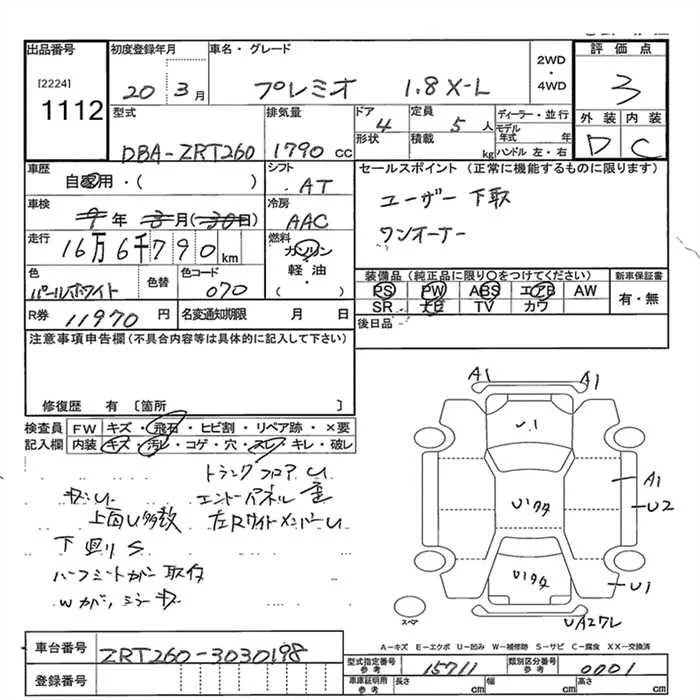 出品番号 初度登録年月 車名・グレード 2WD・4WD 評価点
[2224] 1112
20 3月 プレミオ 1.8 X-L 3
型式 排気量 ドア 定員 ディーラー・並行 外装 内装
DBA-ZRT260 1790 cc 4 5人 モデル年式 年 D C
形状 積載 kg ハンドル 左・右
車歴 シフト セールスポイント (正常に機能するものに限ります)
自家用・( ) AT ユーザー下取
車検 冷房 ワンオーナー
9年 3月 (30日) AAC
走行 燃料
16万6千790km ガソリン
軽油
( )
色 色替 色コード 装備品 (純正品に限り○をつけてください) 新車保証書
パールホワイト 070 PS PW ABS エアB AW 有・無
SR ナビ TV カワ
R券 11970円 名変通知期限 月 日 後日品
注意事項申告欄 (不具合内容等は具体的に記入して下さい)
修復歴 有 〔箇所 〕
検査員 FW キズ・飛石・ヒビ割・リペア跡・×要
記入欄 内装 キズ・汚レ・コゲ・穴・スレ・キレ・破レ
トランクフロア U
エンドパネル 歪
上面U多数 左Rサイドメンバー U
下廻り S
ハーフシートカバー 取付
Wガバ、ミラー キズ
A1 A1
U1
A1
U2
U1
U1
スペア
A-キズ E-エクボ U-凹み W-補修跡 S-サビ C-腐食 XX-交換済
車台番号 ZRT260-3030198
型式指定番号 参考 15711 類別区分番号 参考 0001
登録番号 車庫証明用 参考 長さ cm 幅 cm 高さ cm